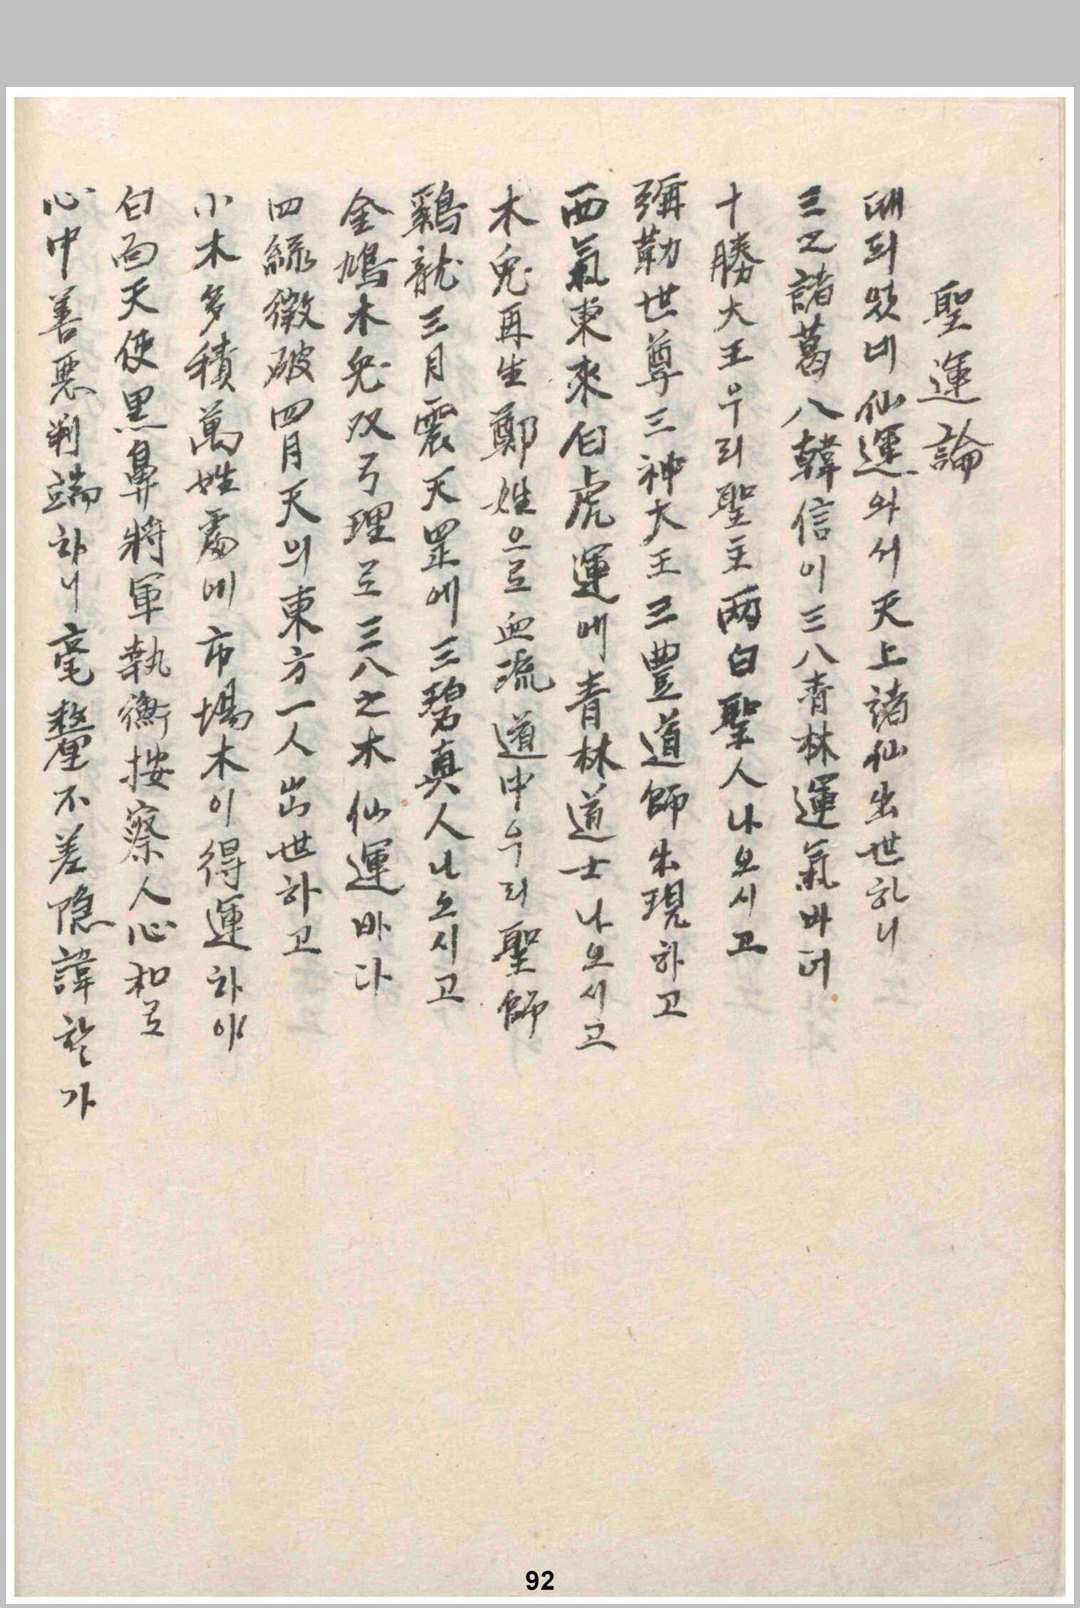 聖運論
때되얏네 仙運와서 天上諸仙出世하니
三之諸葛八韓信이 三八靑林運氣바더
十勝大王우리聖主 兩白聖人나오시고
彌勒世尊三神大王 三豊道師出現하고
西氣東來白虎運에 靑林道士나오시고
木兎再生鄭姓으로 血流道中우리聖師
鷄龍三月震天罡에 三碧眞人나오시고
金鳩木兎双弓理로 三八之木仙運바다
四綠徵破四月天의 東方一人出世하고
小木多積萬姓處에 市場木이得運하야
白面天使黑鼻將軍 執衡按察人心和로
心中善惡判端하니 毫釐不差隱諱할가
92